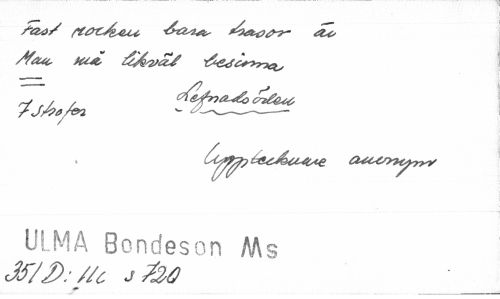 Fast rocken bara trasor är
Man må likväl besinna
7 strofer
Lefnadsöden
Uppteknare anonym
ULMA Bondeson Ms
351 D: 11c s 720